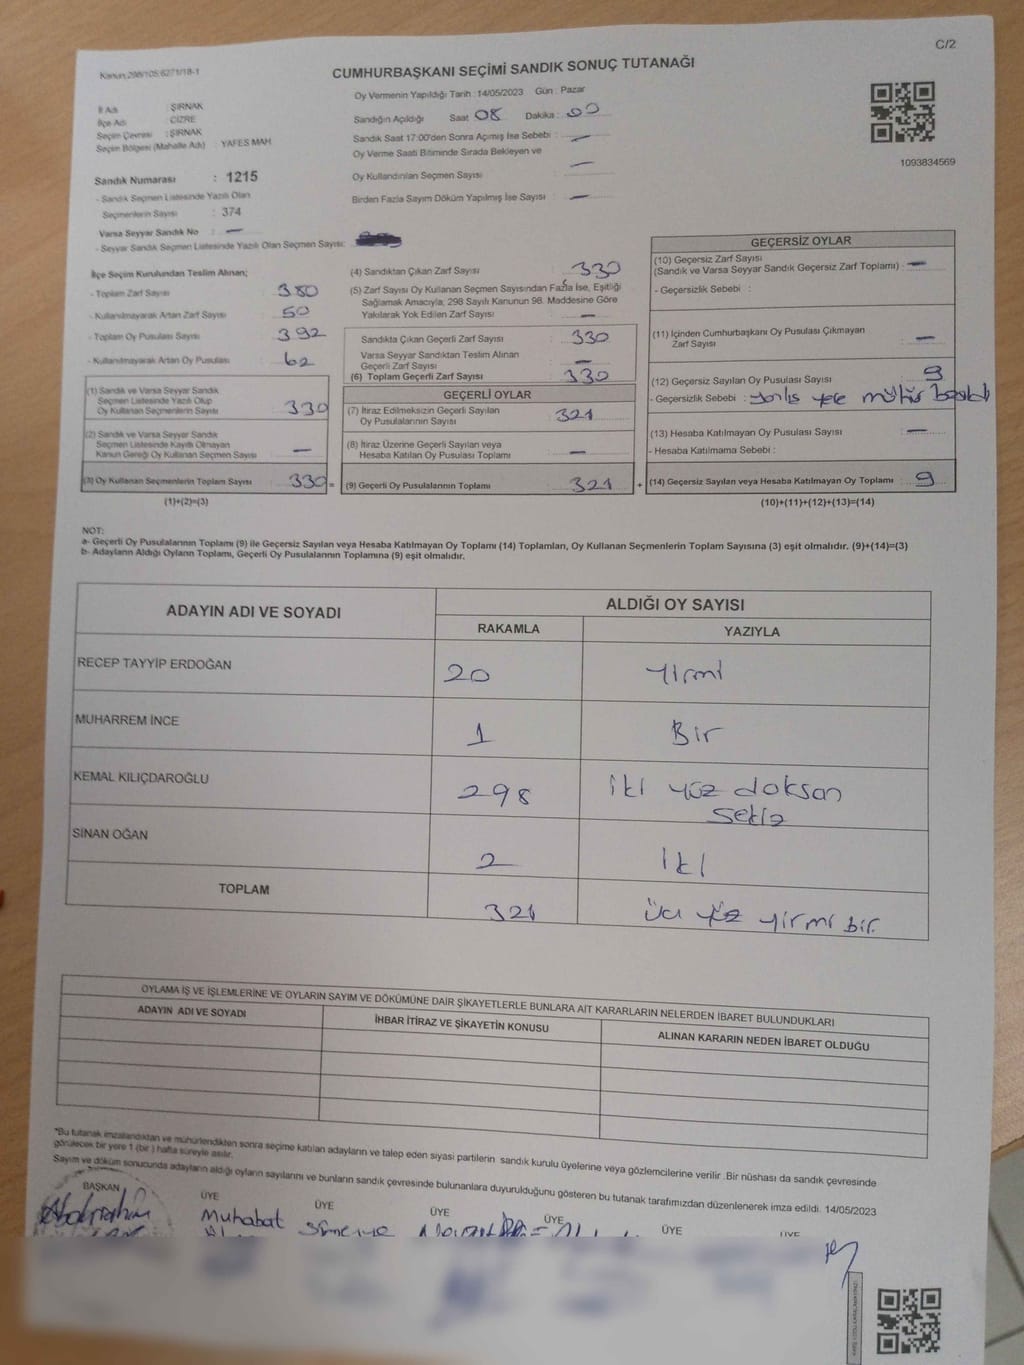 C/2
Kanun;298/105;6271/18-1
CUMHURBAŞKANI SEÇİMİ SANDIK SONUÇ TUTANAĞI
Oy Vermenin Yapıldığı Tarih : 14/05/2023 Gün : Pazar
İl Adı : ŞIRNAK
İlçe Adı : CİZRE
Seçim Çevresi : ŞIRNAK
Seçim Bölgesi (Mahalle Adı) : YAFES MAH
Sandık Numarası : 1215
- Sandık Seçmen Listesinde Yazılı Olan
Seçmenlerin Sayısı : 374
Varsa Seyyar Sandık No : —
- Seyyar Sandık Seçmen Listesinde Yazılı Olan Seçmen Sayısı:
Sandığın Açıldığı Saat 08 Dakika : 00
Sandık Saat 17:00'den Sonra Açılmış İse Sebebi : —
Oy Verme Saati Bitiminde Sırada Bekleyen ve
Oy Kullandırılan Seçmen Sayısı : —
Birden Fazla Sayım Döküm Yapılmış İse Sayısı : —
1093834569
İlçe Seçim Kurulundan Teslim Alınan;
- Toplam Zarf Sayısı : 380
- Kullanılmayarak Artan Zarf Sayısı : 50
- Toplam Oy Pusulası Sayısı : 392
- Kullanılmayarak Artan Oy Pusulası : 62
(1) Sandık ve Varsa Seyyar Sandık
Seçmen Listesinde Yazılı Olup
Oy Kullanan Seçmenlerin Sayısı : 330
(2) Sandık ve Varsa Seyyar Sandık
Seçmen Listesinde Kayıtlı Olmayan
Kanun Gereği Oy Kullanan Seçmen Sayısı : —
(3) Oy Kullanan Seçmenlerin Toplam Sayısı : 330 =
(1)+(2)=(3)
(4) Sandıktan Çıkan Zarf Sayısı : 330
(5) Zarf Sayısı Oy Kullanan Seçmen Sayısından Fazla İse, Eşitliği
Sağlamak Amacıyla, 298 Sayılı Kanunun 98. Maddesine Göre
Yakılarak Yok Edilen Zarf Sayısı : —
Sandıkta Çıkan Geçerli Zarf Sayısı : 330
Varsa Seyyar Sandıktan Teslim Alınan
Geçerli Zarf Sayısı : —
(6) Toplam Geçerli Zarf Sayısı : 330
GEÇERLİ OYLAR
(7) İtiraz Edilmeksizin Geçerli Sayılan
Oy Pusulalarının Sayısı : 321
(8) İtiraz Üzerine Geçerli Sayılan veya
Hesaba Katılan Oy Pusulası Toplamı : —
(9) Geçerli Oy Pusulalarının Toplamı : 321 +
GEÇERSİZ OYLAR
(10) Geçersiz Zarf Sayısı
(Sandık ve Varsa Seyyar Sandık Geçersiz Zarf Toplamı) : —
- Geçersizlik Sebebi :
(11) İçinden Cumhurbaşkanı Oy Pusulası Çıkmayan
Zarf Sayısı : —
(12) Geçersiz Sayılan Oy Pusulası Sayısı : 9
- Geçersizlik Sebebi : yanlış yere mühür basıldı
(13) Hesaba Katılmayan Oy Pusulası Sayısı : —
- Hesaba Katılmama Sebebi :
(14) Geçersiz Sayılan veya Hesaba Katılmayan Oy Toplamı : 9
(10)+(11)+(12)+(13)=(14)
NOT:
a- Geçerli Oy Pusulalarının Toplamı (9) ile Geçersiz Sayılan veya Hesaba Katılmayan Oy Toplamı (14) Toplamları, Oy Kullanan Seçmenlerin Toplam Sayısına (3) eşit olmalıdır. (9)+(14)=(3)
b- Adayların Aldığı Oyların Toplamı, Geçerli Oy Pusulalarının Toplamına (9) eşit olmalıdır.
ADAYIN ADI VE SOYADI
ALDIĞI OY SAYISI
RAKAMLA YAZIYLA
RECEP TAYYİP ERDOĞAN 20 yirmi
MUHARREM İNCE 1 Bir
KEMAL KILIÇDAROĞLU 298 iki yüz doksan
sekiz
SİNAN OĞAN 2 iki
TOPLAM 321 üç yüz yirmi bir.
OYLAMA İŞ VE İŞLEMLERİNE VE OYLARIN SAYIM VE DÖKÜMÜNE DAİR ŞİKAYETLERLE BUNLARA AİT KARARLARIN NELERDEN İBARET BULUNDUKLARI
ADAYIN ADI VE SOYADI İHBAR İTİRAZ VE ŞİKAYETİN KONUSU ALINAN KARARIN NEDEN İBARET OLDUĞU
*Bu tutanak imzalandıktan ve mühürlendikten sonra seçime katılan adayların ve talep eden siyasi partilerin sandık kurulu üyelerine veya gözlemcilerine verilir .Bir nüshası da sandık çevresinde
görülecek bir yere 1 (bir ) hafta süreyle asılır.
Sayım ve döküm sonucunda adayların aldığı oyların sayılarını ve bunların sandık çevresinde bulunanlara duyurulduğunu gösteren bu tutanak tarafımızdan düzenlenerek imza edildi. 14/05/2023
BAŞKAN ÜYE ÜYE ÜYE ÜYE ÜYE ÜYE
Muhabat